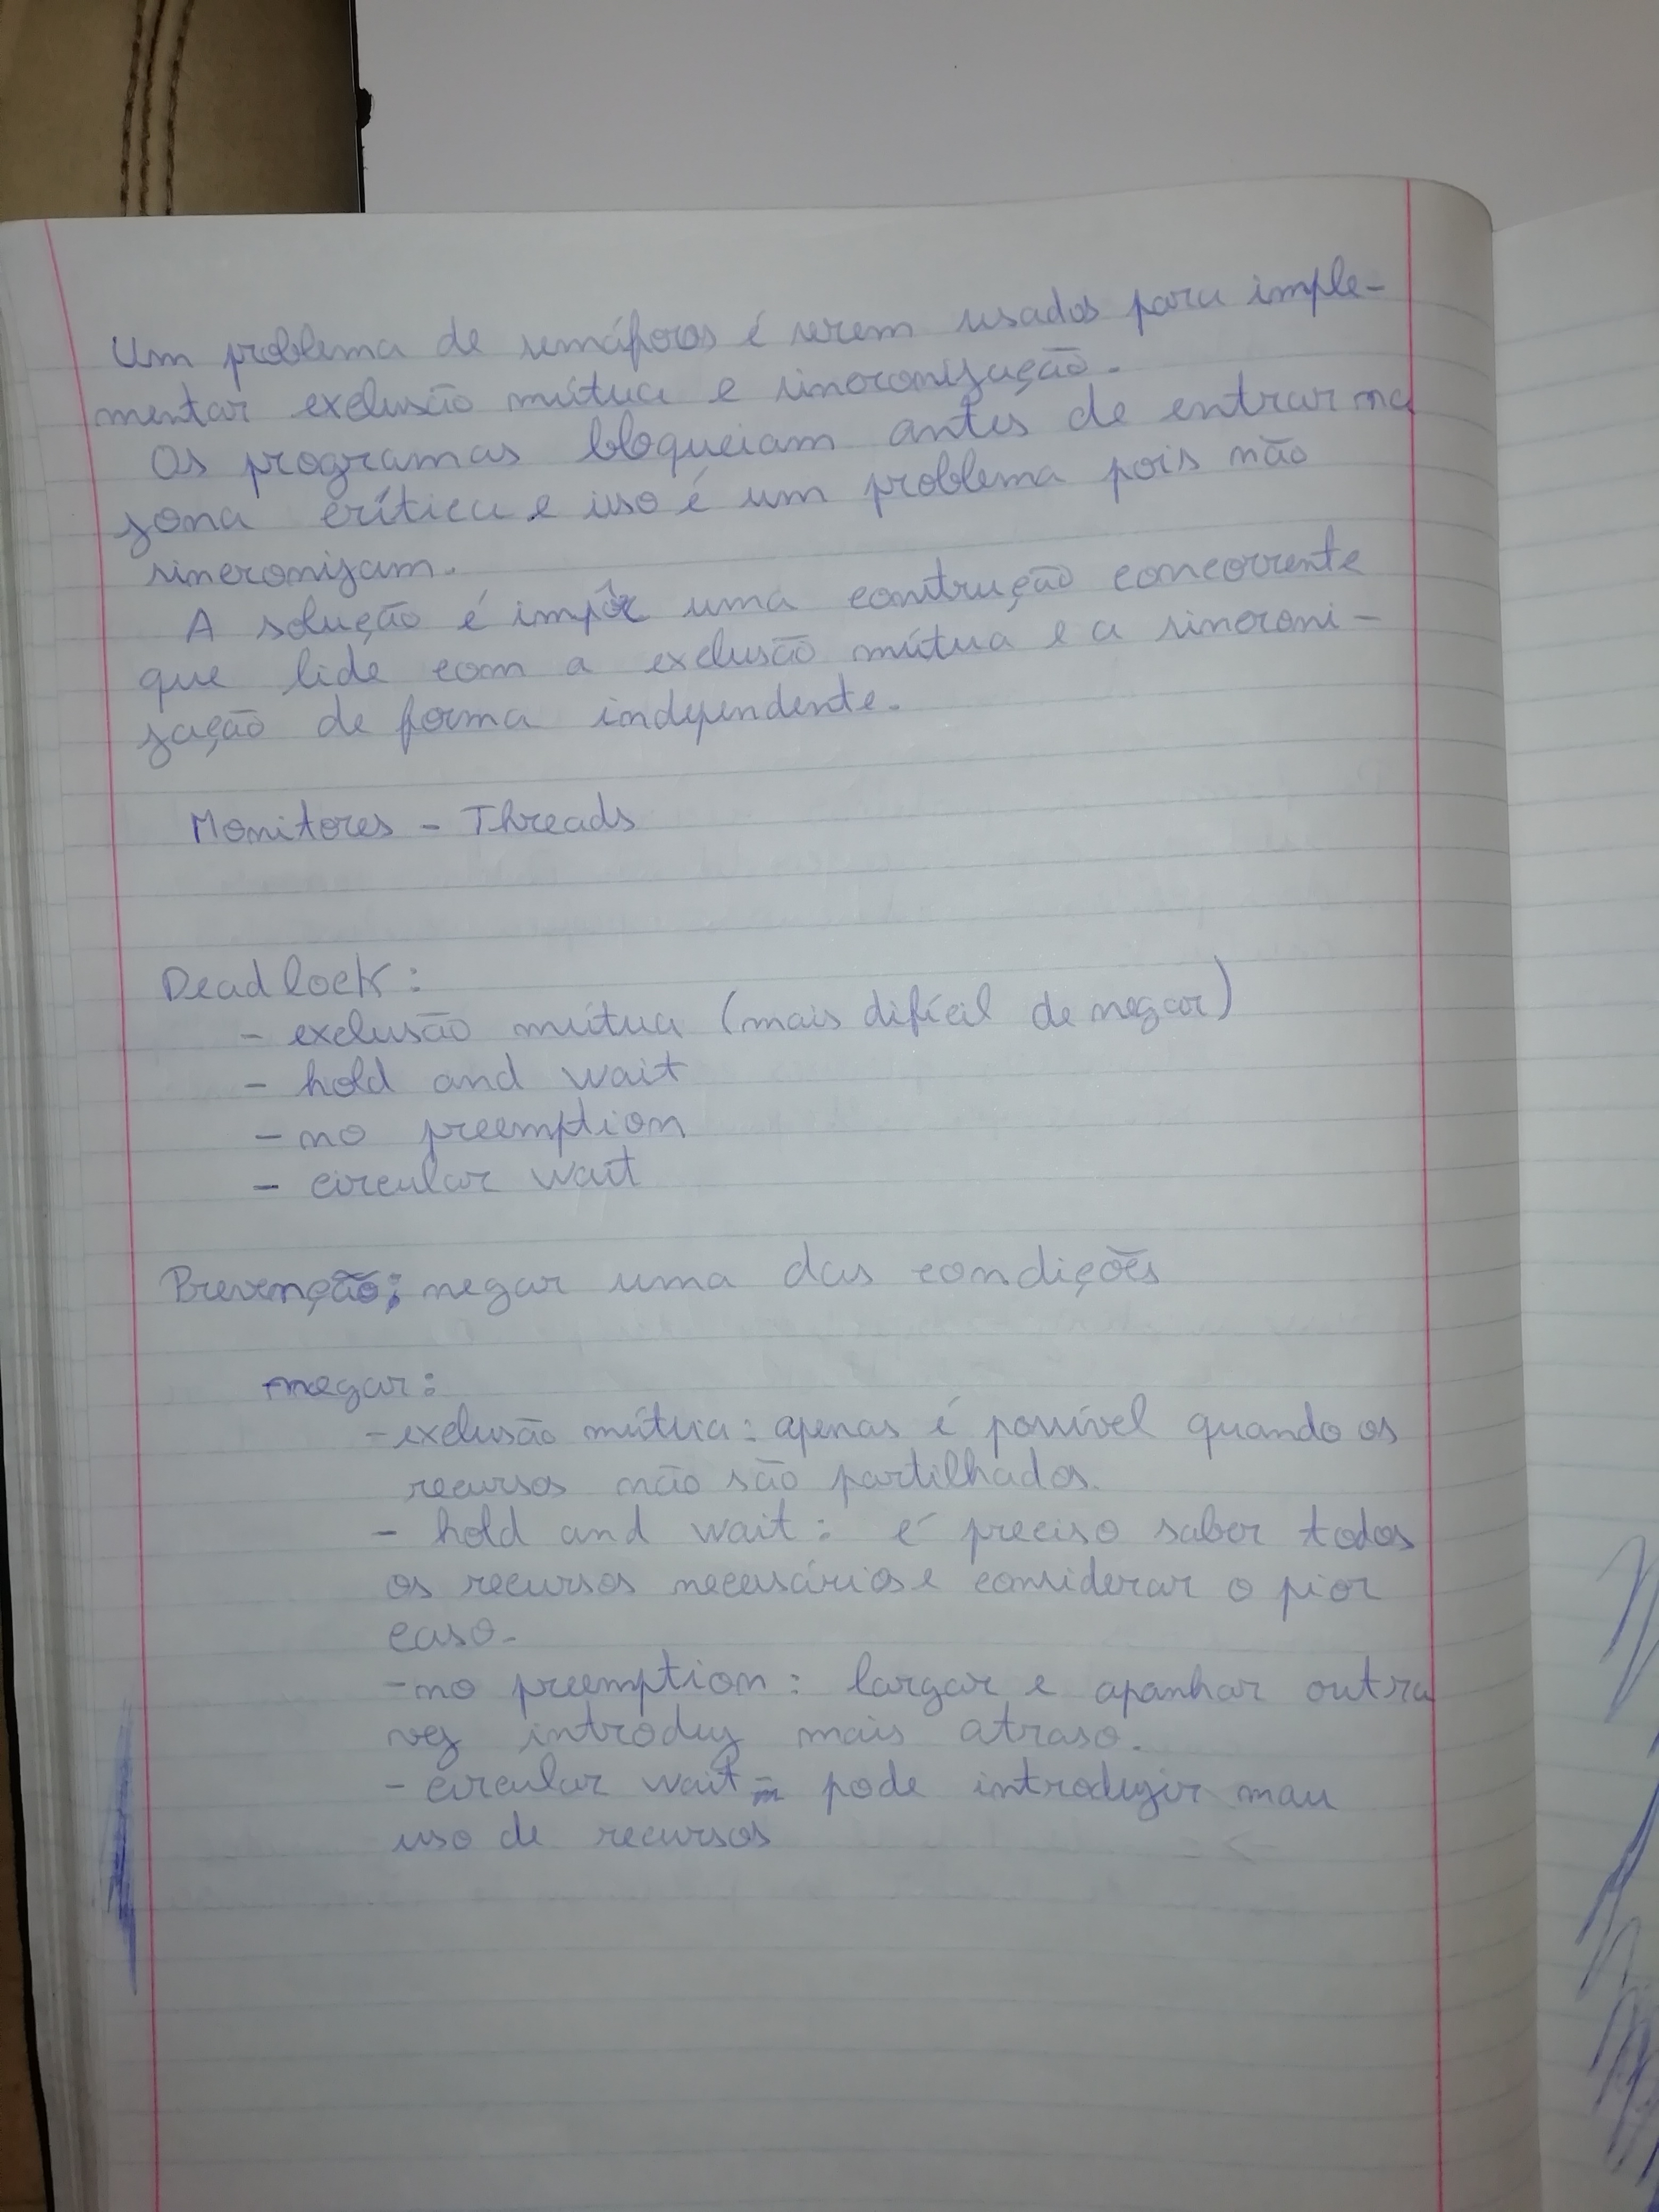 Um problema de semáforos é serem usados para imple-
mentar exclusão mútua e sincronização.
Os programas bloqueiam antes de entrar na
zona crítica e isso é um problema pois não
sincronizam.
A solução é impôr uma construção concorrente
que lide com a exclusão mútua e a sincroni-
zação de forma independente.
Monitores - Threads
Deadlock:
- exclusão mútua (mais difícil de negar)
- hold and wait
- no preemption
- circular wait
Prevenção: negar uma das condições
negar:
- exclusão mútua: apenas é possível quando os
recursos não são partilhados.
- hold and wait: é preciso saber todos
os recursos necessários e considerar o pior
caso.
- no preemption: largar e apanhar outra
vez introduz mais atraso.
- circular wait - pode introduzir mau
uso de recursos